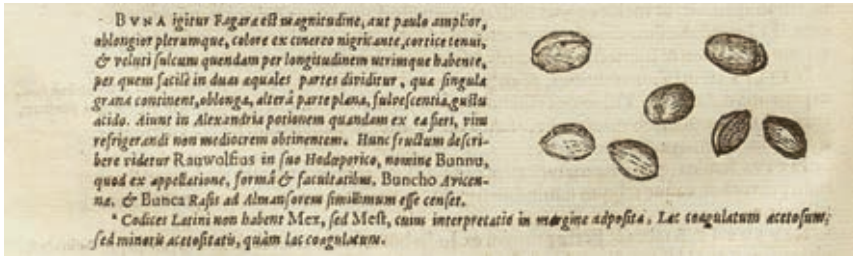 BVNA igitur Fagara est magnitudine, aut paulo amplior,
oblongior plerumque, colore ex cinereo nigricante, cortice tenui,
& veluti sulcum quendam per longitudinem utrimque habente,
per quem facilè in duas æquales partes dividitur, quæ singula
grana continent, oblonga, alterâ parte plana, fulvescentia, gustu
acido. Aiunt in Alexandria potionem quandam ex ea fieri, vim
refrigerandi non mediocrem obtinentem. Hunc fructum descri-
bere videtur Rauwolfius in suo Hodœporico, nomine Bunnu,
quod ex appellatione, formâ & facultatibus, Buncho Avicen-
næ, & Bunca Rasis ad Almansorem simillimum esse censet.
* Codices Latini non habent Mex, sed Mest, cuius interpretatio in margine adposita, Lac coagulatum acetosum;
sed minoris acetositatis, quàm lac coagulatum.